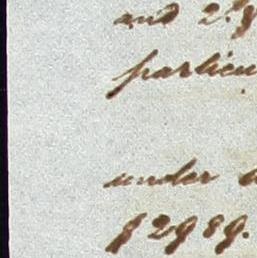 and 2.
particu
under a
§ 2989.